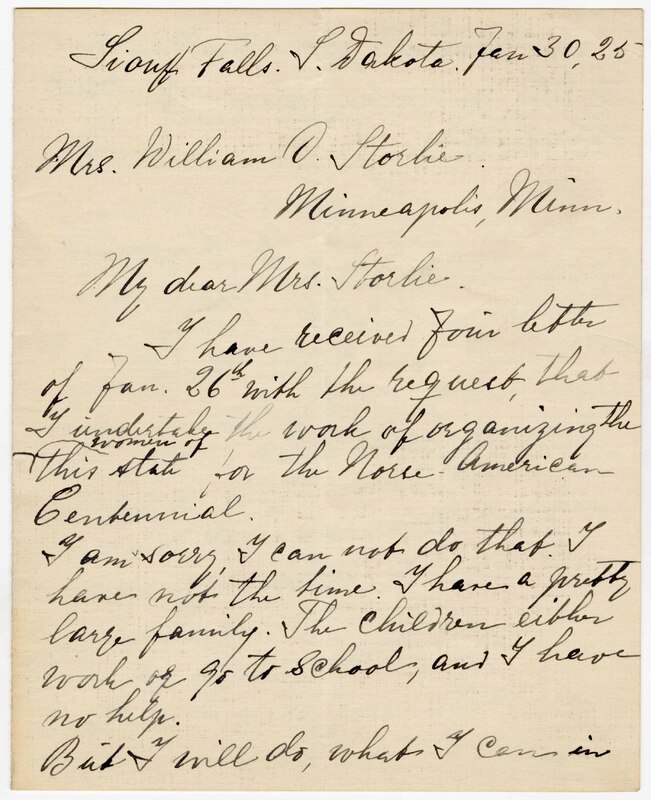 Sioux Falls. S. Dakota. Jan 30, 25
Mrs. William O. Storlie.
Minneapolis, Minn.
My dear Mrs. Storlie.
I have received Your letter
of Jan. 26th with the request, that
I undertake the work of organizing the
women of
this state for the Norse-American
Centennial.
I am sorry, I can not do that. I
have not the time. I have a pretty
large family. The children either
work or go to school, and I have
no help.
But I will do, what I can in